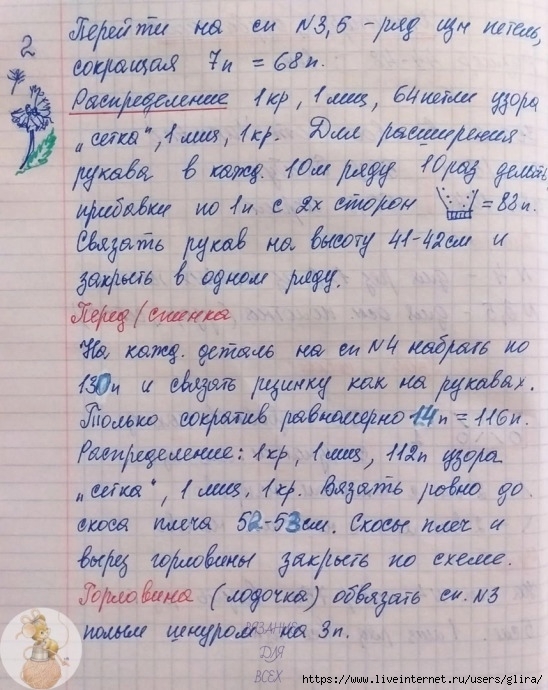 2
Перейти на сп N3,5 - ряд изн петель,
сокращая 7п = 68п.
Распределение 1кр, 1лиц, 64петли узора
„сетка“, 1лиц, 1кр. Для расширения
рукава в кажд. 10м ряду 10раз делать
прибавки по 1п с 2х сторон = 88п.
Связать рукав на высоту 41-42см и
закрыть в одном ряду.
Перед/спинка
На кажд. деталь на сп N4 набрать по
130п и связать резинку как на рукавах.
Только сократив равномерно 14п = 116п.
Распределение: 1кр, 1лиц, 112п узора
„сетка“, 1лиц, 1кр. Вязать ровно до
скоса плеча 52-53см. Скосы плеч и
вырез горловины закрыть по схеме.
Горловина (лодочка) обвязать сп. N3
полым шнуром на 3п.
ВЯЗАНИЕ
ДЛЯ
ВСЕХ
https://www.liveinternet.ru/users/glira/